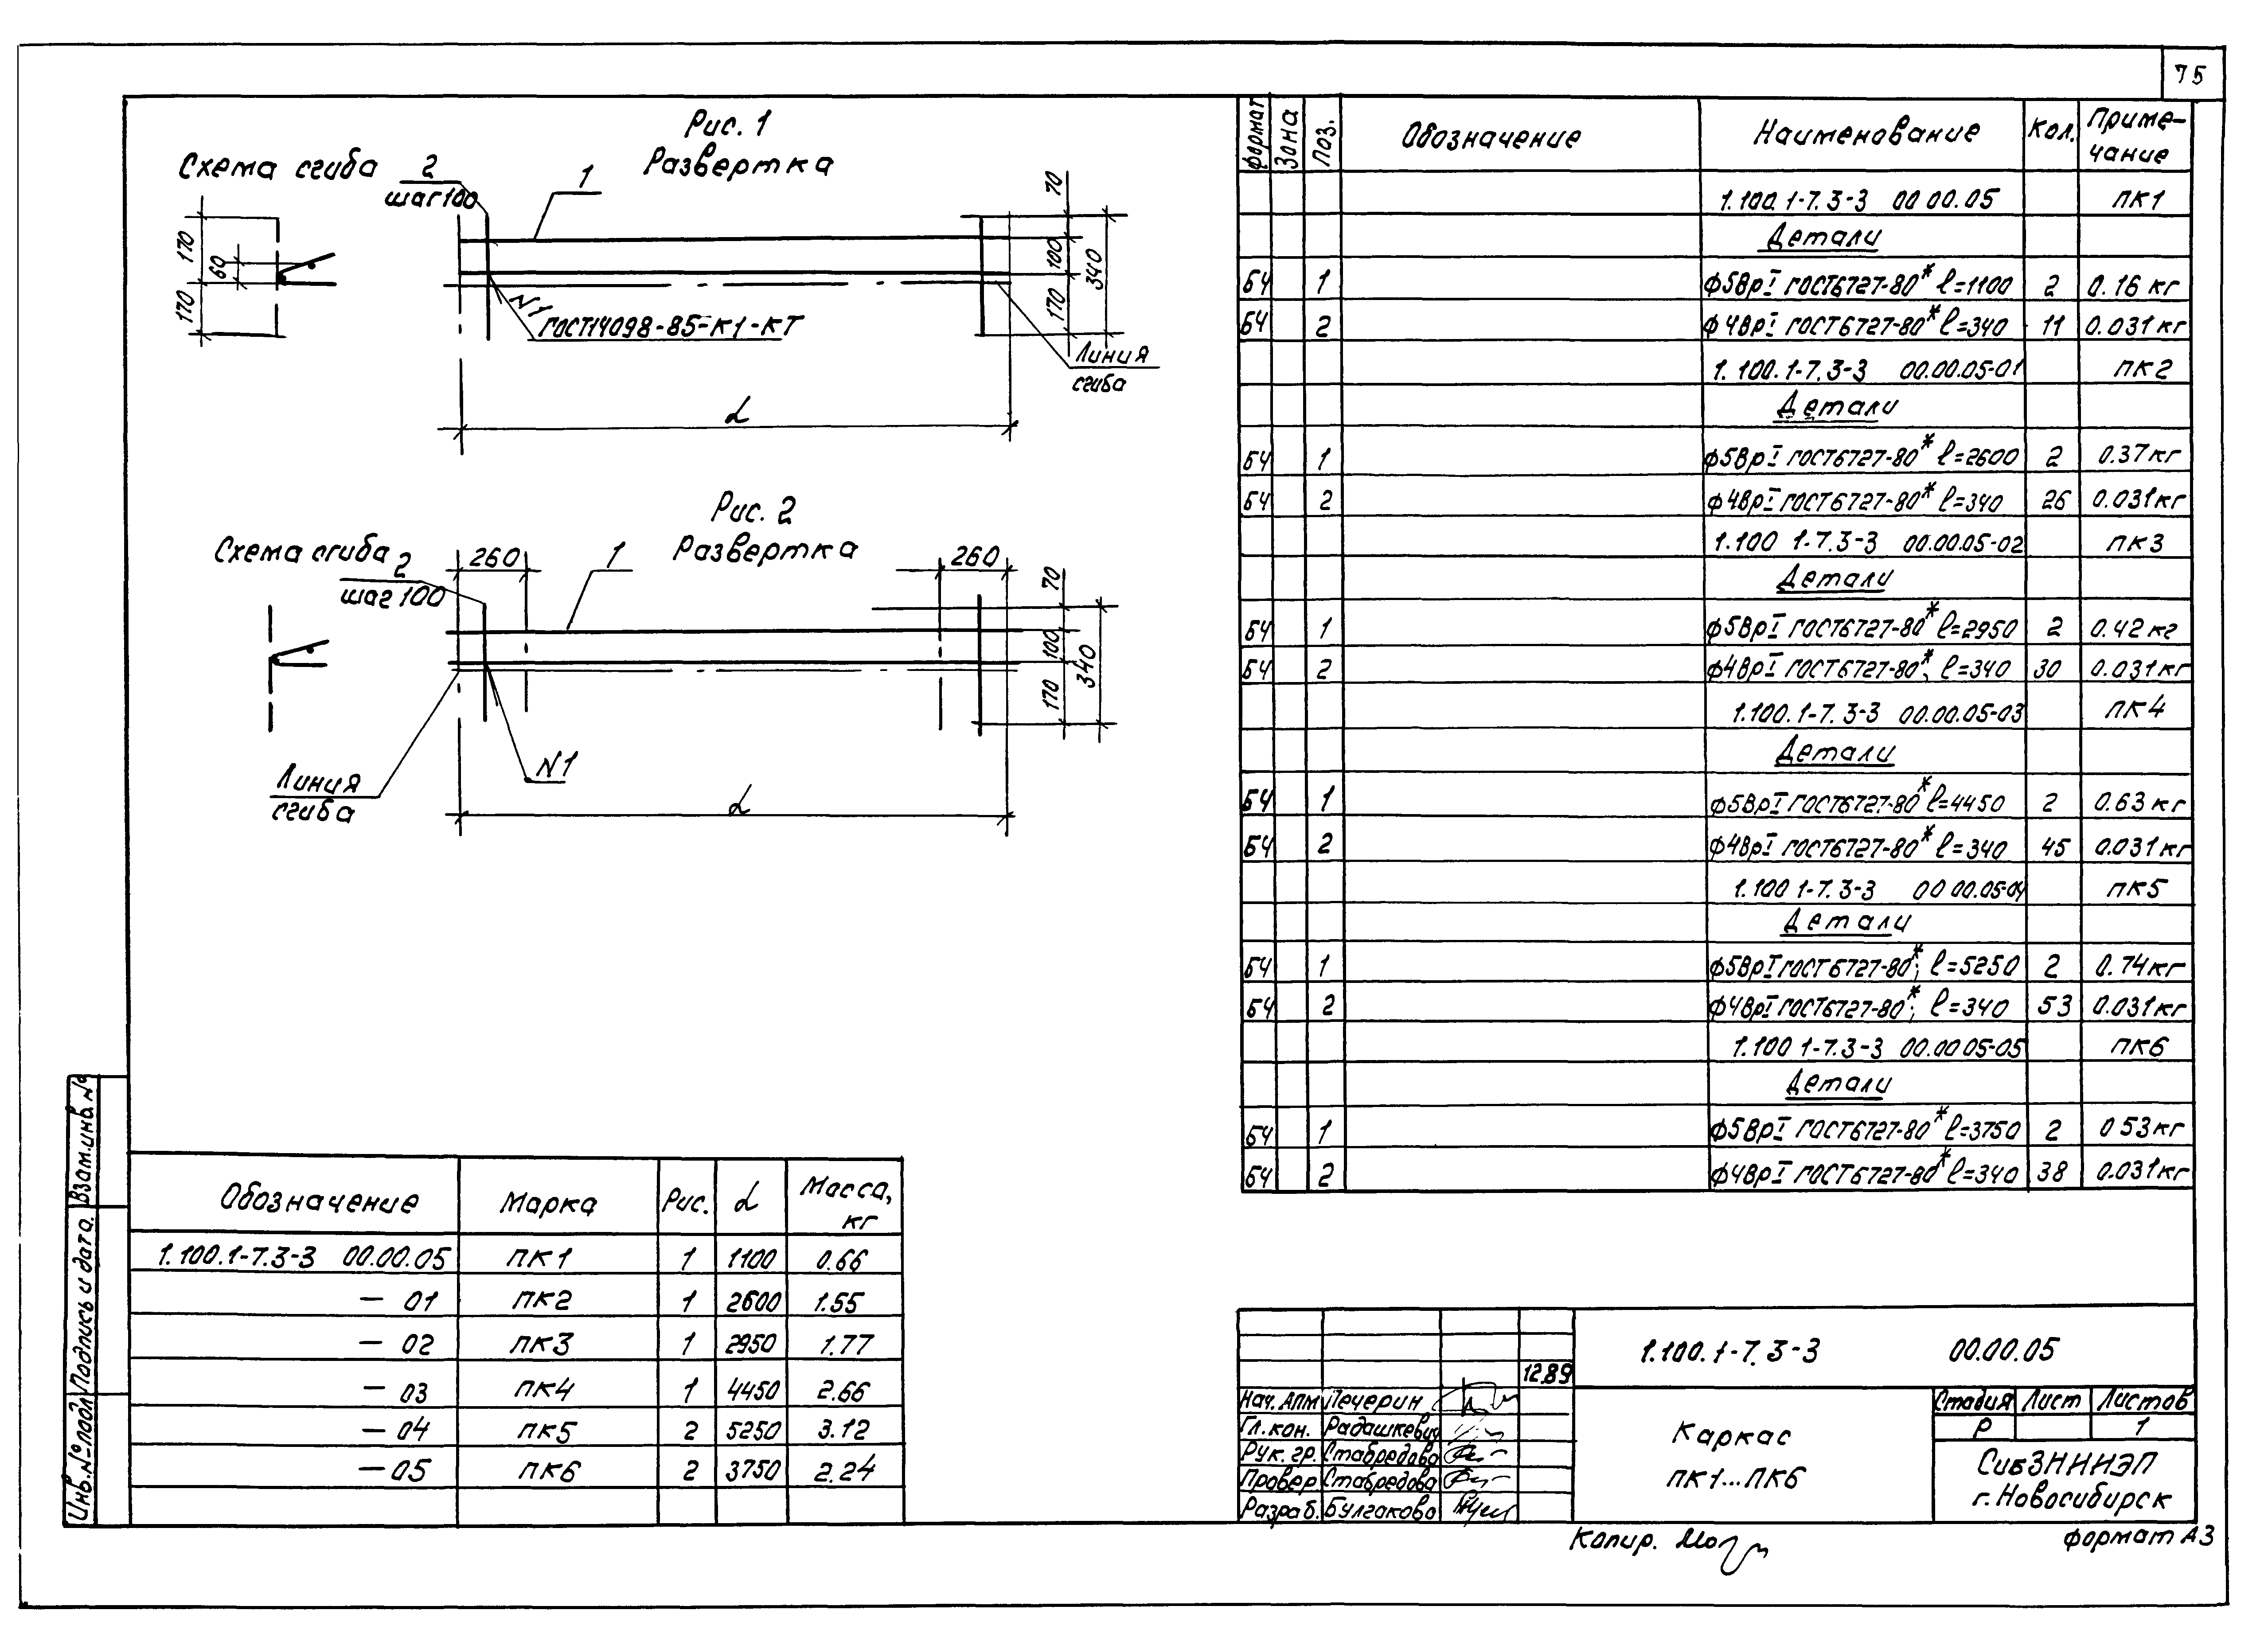 75
Рис. 1
Развертка
Схема сгиба
2
шаг 100
1
170
60
170
70
100
170
340
N1
ГОСТ14098-85-К1-КТ
Линия
сгиба
L
Рис. 2
Развертка
Схема сгиба
2
шаг 100
260
1
260
70
100
170
340
N1
Линия
сгиба
L
Формат Зона Поз. Обозначение Наименование Кол. Приме-
чание
1.100.1-7.3-3 00.00.05 ПК1
Детали
БЧ 1 ф5ВрI ГОСТ6727-80* ℓ=1100 2 0.16 кг
БЧ 2 ф4ВрI ГОСТ6727-80* ℓ=340 11 0.031кг
1.100.1-7.3-3 00.00.05-01 ПК2
Детали
БЧ 1 ф5ВрI ГОСТ6727-80* ℓ=2600 2 0.37кг
БЧ 2 ф4ВрI ГОСТ6727-80* ℓ=340 26 0.031кг
1.100 1-7.3-3 00.00.05-02 ПК3
Детали
БЧ 1 ф5ВрI ГОСТ6727-80* ℓ=2950 2 0.42кг
БЧ 2 ф4ВрI ГОСТ6727-80*, ℓ=340 30 0.031кг
1.100.1-7.3-3 00.00.05-03 ПК4
Детали
БЧ 1 ф5ВрI ГОСТ6727-80* ℓ=4450 2 0.63кг
БЧ 2 ф4ВрI ГОСТ6727-80* ℓ=340 45 0.031кг
1.100 1-7.3-3 00 00.05-04 ПК5
Детали
БЧ 1 ф5ВрI ГОСТ6727-80*; ℓ=5250 2 0.74кг
БЧ 2 ф4ВрI ГОСТ6727-80*; ℓ=340 53 0.031кг
1.100 1-7.3-3 00.00 05-05 ПК6
Детали
БЧ 1 ф5ВрI ГОСТ6727-80* ℓ=3750 2 0 53кг
БЧ 2 ф4ВрI ГОСТ6727-80* ℓ=340 38 0.031кг
Обозначение Марка Рис. L Масса,
кг
1.100.1-7.3-3 00.00.05 ПК1 1 1100 0.66
— 01 ПК2 1 2600 1.55
— 02 ПК3 1 2950 1.77
— 03 ПК4 1 4450 2.66
— 04 ПК5 2 5250 3.12
— 05 ПК6 2 3750 2.24
Взам.инв.№
Подпись и дата.
Инв.№подл
12.89
1.100.1-7.3-3 00.00.05
Нач. АПМ Печерин
Гл.кон. Радашкевич
Рук. гр. Стабредова
Провер Стабредова
Разраб. Булгакова
Каркас
ПК1...ПК6
Стадия Лист Листов
Р 1
СибЗНИИЭП
г.Новосибирск
Копир.
формат А3